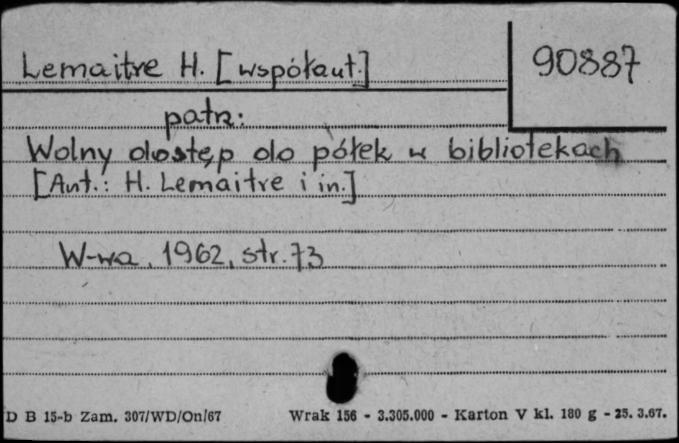 Lemaitre H. [współaut.]
90887
patrz:
Wolny dostęp do półek w bibliotekach
[Aut.: H. Lemaitre i in.]
W-wa, 1962, str. 73
D B 15-b Zam. 307/WD/On/67 Wrak 156 - 3.305.000 - Karton V kl. 180 g - 25. 3.67.